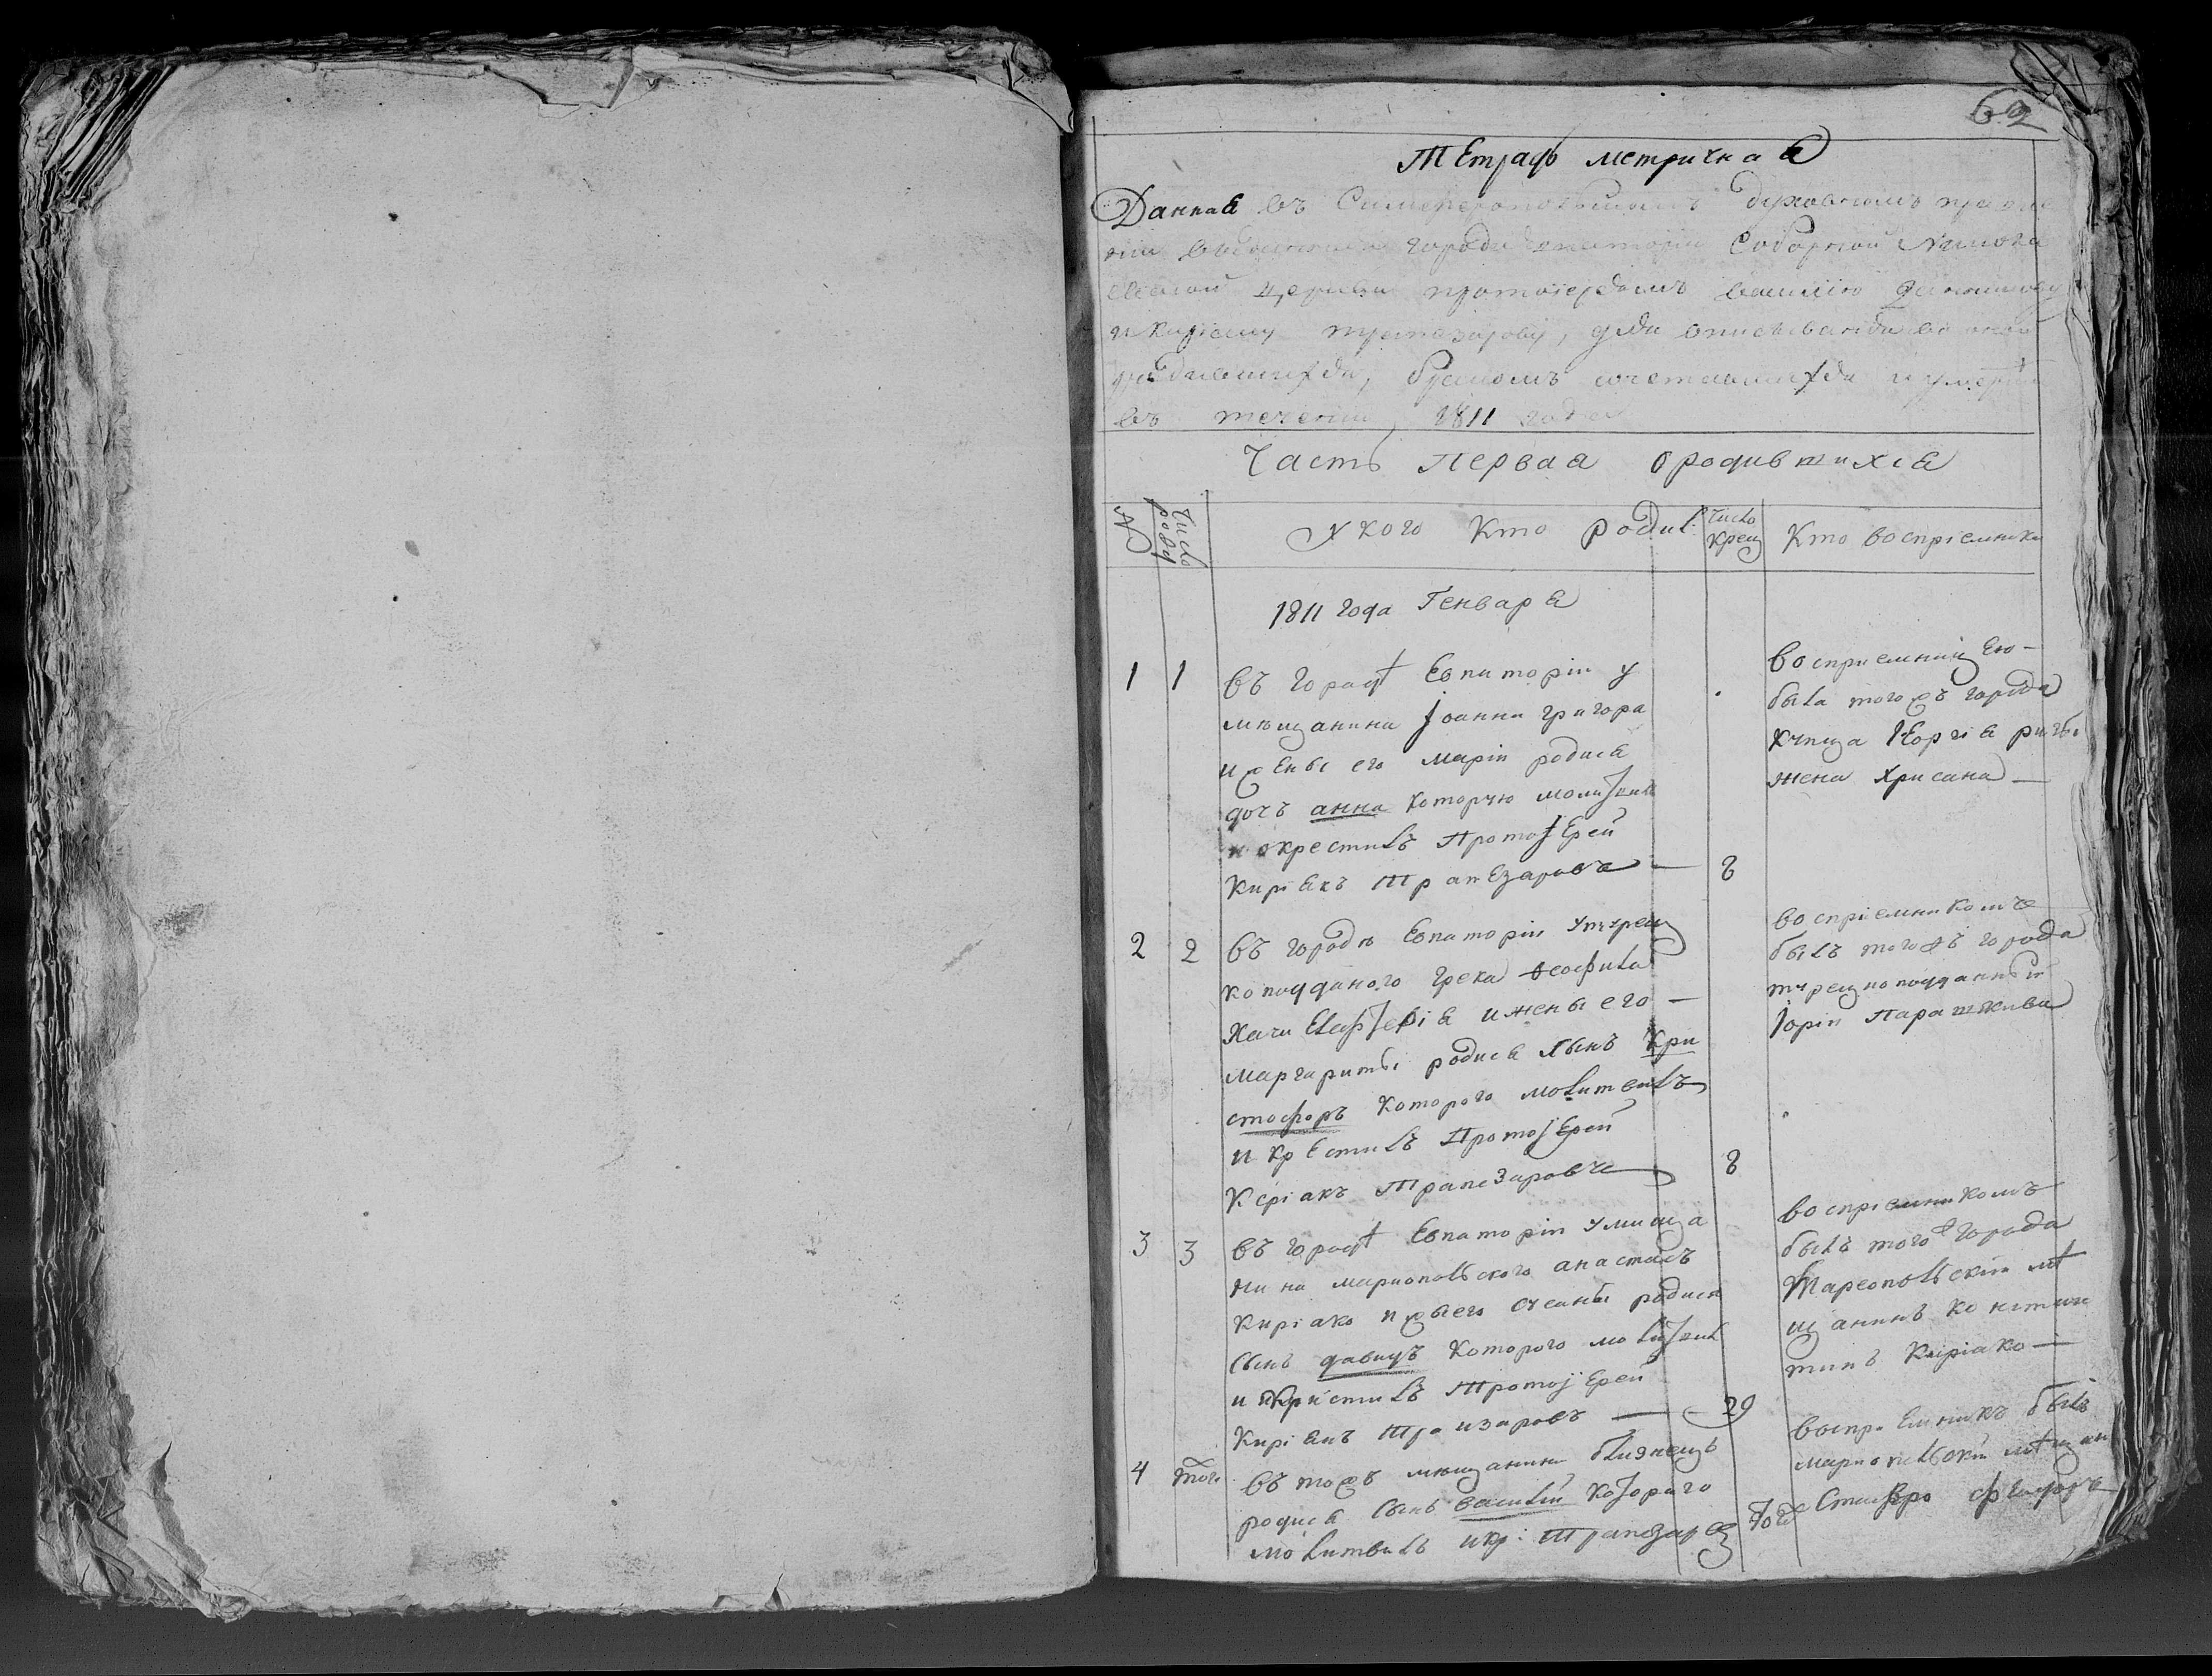 62
Тетрадь метричная
Данная въ Симферопольскомъ духовномъ правле
нии города Евпаторіи Соборной Николае
вской церкви протоіереамъ василію
и киріаку трапезарову, для вписыванія во оной
родившихся, бракомъ сочетавшихся и умерши
въ течении 1811 года
Часть первая о родившихся
№
Число
роду
У кого кто родил:
Число
крещ
Кто воспріемники
1811 года Генваря
1 1 въ городѣ Евпаторіи у
мѣщанина Іоанна григора
и жены его маріи родися
дочь анна которую молитвил
и окрестилъ Протоіерей
киріякъ Трапезаровъ — 8
восприемницею
была того жъ города
купца Георгія
жена Хрисана —
2 2 въ городѣ Евпаторіи у турец
коподданого грека Ѳеофила
Хачи Елефтерія и жены его —
маргариты родися сынъ Кри
стофоръ которого молитвилъ
и крестилъ Протоіерей
Керіакъ Трапезаровъ 8
воспріемникомъ
былъ тогожъ города
турецкоподданный
Іоріи Парашкива
3 3 въ городѣ Евпаторіи у мища
нина мариопольского анастасъ
Киріако и жы его родися
сынъ давидъ которого молитвил
и кристилъ Протоіерей
Киріякъ Трапизаровъ — 29
воспріемникомъ
былъ тогож города
Мареопольский мѣ
щанинъ констан
тинъ Киріако —
4 того въ тожъ мѣщанина близнецъ
родися сынъ василий которого
молитвилъ и кр: Трапезаров тож
воспріемникъ былъ
мариопольский мѣщан
Ставро